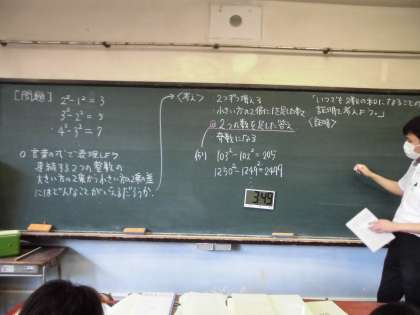 [問題]
2²-1²=3
・3²-2²=5
・4²-3²=7
○ 言葉の式で表現しよう
連続する2つの整数の
大きい方の2乗から小さい方の2乗の差
にはどんなことがいえるだろうか。
<考え>
2つずつ増える
・小さい方の2倍に1を足した数
2つの数を足した答え
奇数になる
(例) 103²-102²=205
1250²-1249²=2499
「いつでも2数の和になることの
証明を考えよう。」
<証明>
349